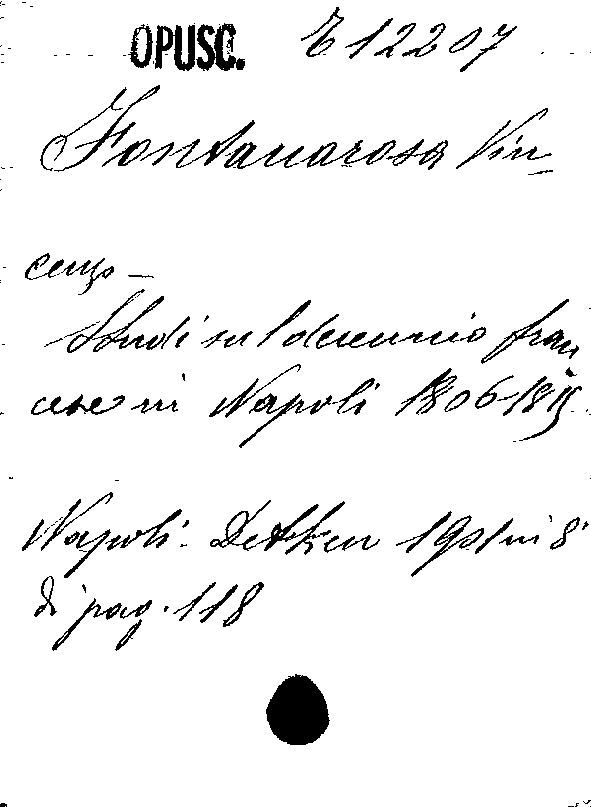 OPUSC. E 12207
Fontanarosa Vin
cenzo -
Studi sul decennio fran
cese in Napoli 1806-1815
Napoli. Detken 1901 in 8°
di pag. 118